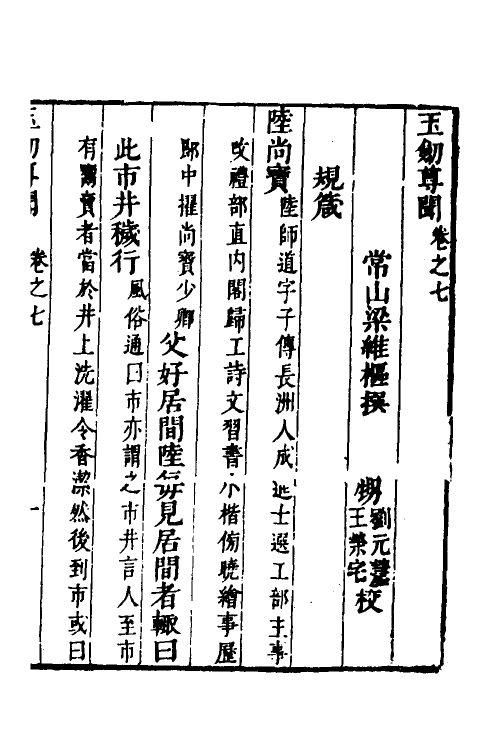 玉劒尊聞 卷之七
常山梁維樞撰 甥劉元慧 王榮宅 校
規箴
陸尚寶 陸師道字子傳長洲人成進士選工部主事
改禮部直內閣歸工詩文習書小楷傍曉繪事歷
郎中擢尚寶少卿 父好居間陸每見居間者輙曰
此市井穢行 風俗通曰市亦謂之市井言人至市
有鬻賣者當於井上洗濯令香潔然後到市或曰
卷之七 一